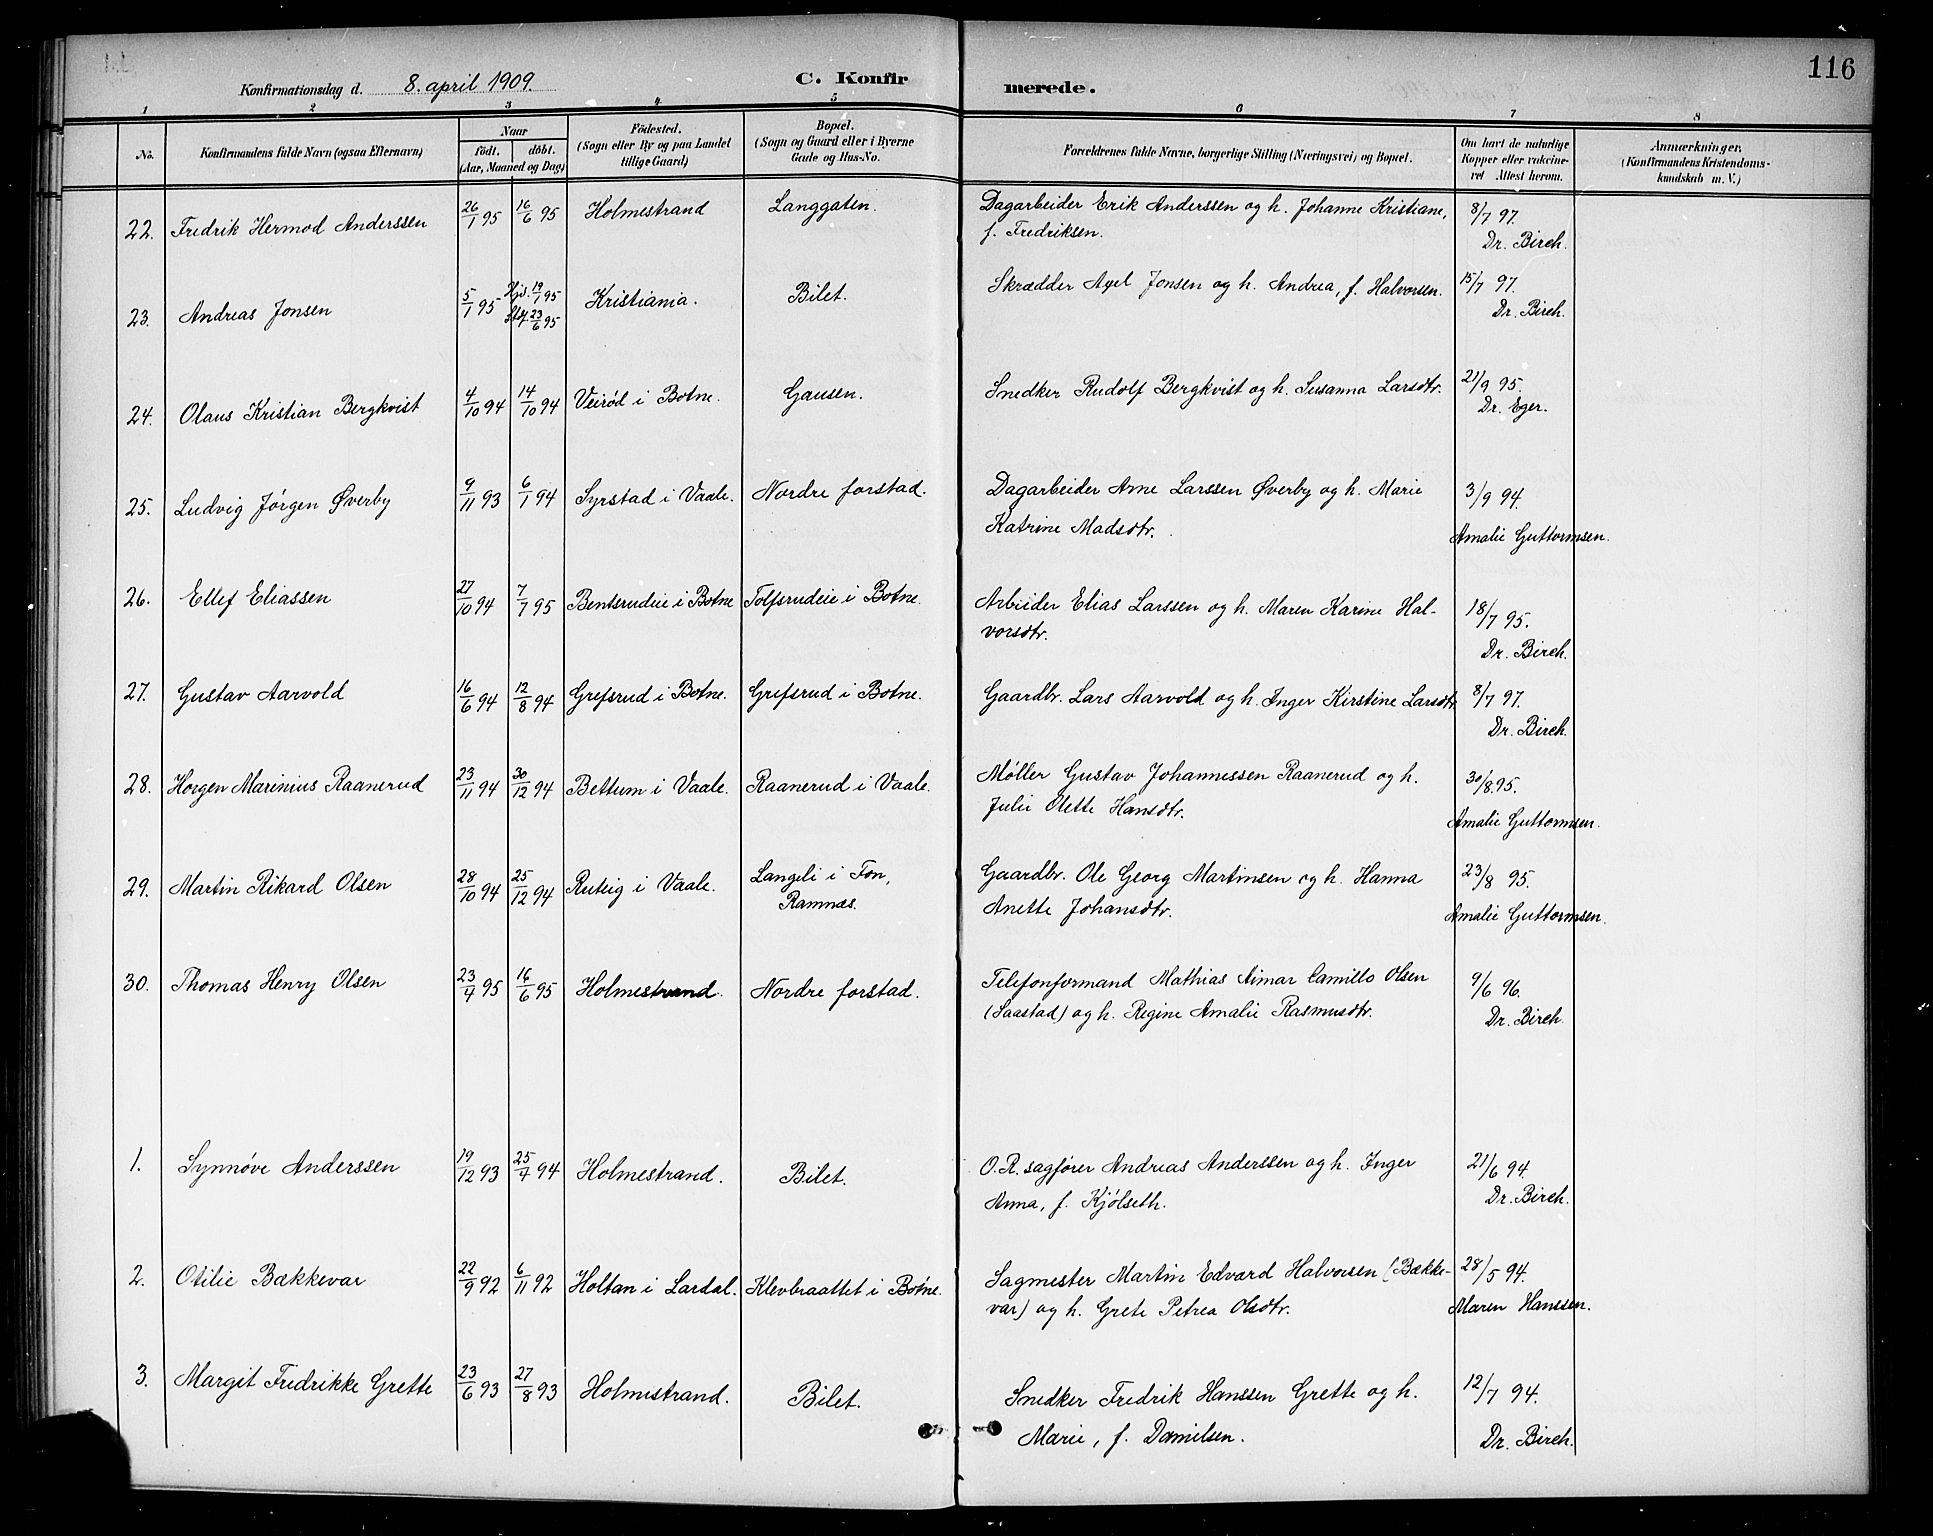 116
Konfirmationsdag d. 8. april 1909. C. Konfirmerede.
1 2 3 4 5 6 7 8
No. Konfirmandens fulde Navn (ogsaa Efternavn) Naar født, døbt. (Aar, Maaned og Dag) Fødested. (Sogn eller By og paa Landet tillige Gaard) Bopæl. (Sogn og Gaard eller i Byerne Gade og Hus-No. Forældrenes fulde Navne, borgerlige Stilling (Næringsvei) og Bopæl. Om havt de naturlige Kopper eller vakcineret Attest herom. Anmærkninger, (Konfirmandens Kristendomskundskab m. V.)
22. Fredrik Hermod Anderssen 26/1 95 16/6 95 Holmestrand Langgaten. Dagarbeider Erik Anderssen og h. Johanne Kristiane, 8/7 97.
f. Fredriksen. Dr. Birch.
23. Andreas Jonsen 5/1 95 Hjd. 19/1 95 Kristiania. Bilet. Skrædder Axel Jonsen og h. Andrea, f. Halvorsen. 15/7 97.
Stdf. 23/6 95 Dr. Birch.
24. Olaus Kristian Bergkvist 4/10 94 14/10 94 Veirød i Botne. Gausen. Snedker Rudolf Bergkvist og h. Susanna Larsdtr. 21/9 95.
Dr. Eger.
25. Ludvig Jørgen Øverby 9/11 93 6/1 94 Syrstad i Vaale. Nordre forstad. Dagarbeider Arne Larssen Øverby og h. Marie 3/9 94.
Katrine Madsdtr. Amalie Guttormsen.
26. Ellef Eliassen 27/10 94 7/7 95 Bentsrudeie i Botne Tolfsrudeie i Botne. Arbeider Elias Larssen og h. Maren Karine Hal- 18/7 95.
vorsdtr. Dr. Birch.
27. Gustav Aarvold 16/6 94 12/8 94 Grefsrud i Botne. Grefsrud i Botne. Gaardbr. Lars Aarvold og h. Inger Kirstine Larsdtr. 8/7 97.
Dr. Birch.
28. Horgen Marinius Raanerud 23/11 94 30/12 94 Bettum i Vaale. Raanerud i Vaale. Møller Gustav Johannessen Raanerud og h. 30/8 95.
Julie Olette Hansdtr. Amalie Guttormsen.
29. Martin Rikard Olsen 28/10 94 25/12 94 Ruteig i Vaale. Langeli i Fon, Gaardbr. Ole Georg Martinsen og h. Hanna 23/8 95.
Ramnæs. Anette Johansdtr. Amalie Guttormsen.
30. Thomas Henry Olsen 23/4 95 16/6 95 Holmestrand. Nordre forstad. Telefonformand Mathias Aimar Camillo Olsen 9/6 96.
(Saastad) og h. Regine Amalie Rasmusdtr. Dr. Birch.
1. Synnøve Anderssen 19/12 93 25/7 94 Holmestrand. Bilet. O.R. sagfører Andreas Anderssen og h. Inger 21/6 94.
Anna, f. Kjølseth. Dr. Birch.
2. Otilie Bækkevar 22/9 92 6/11 92 Holtan i Lardal. Klevbraattet i Botne. Sagmester Martin Edvard Halvorsen (Bække- 28/5 94.
var) og h. Grete Petrea Olsdtr. Maren Hanssen.
3. Margit Fredrikke Grette 23/6 93 27/8 93 Holmestrand. Bilet. Snedker Fredrik Hanssen Grette og h. 12/7 94.
Marie, f. Danielsen. Dr. Birch.